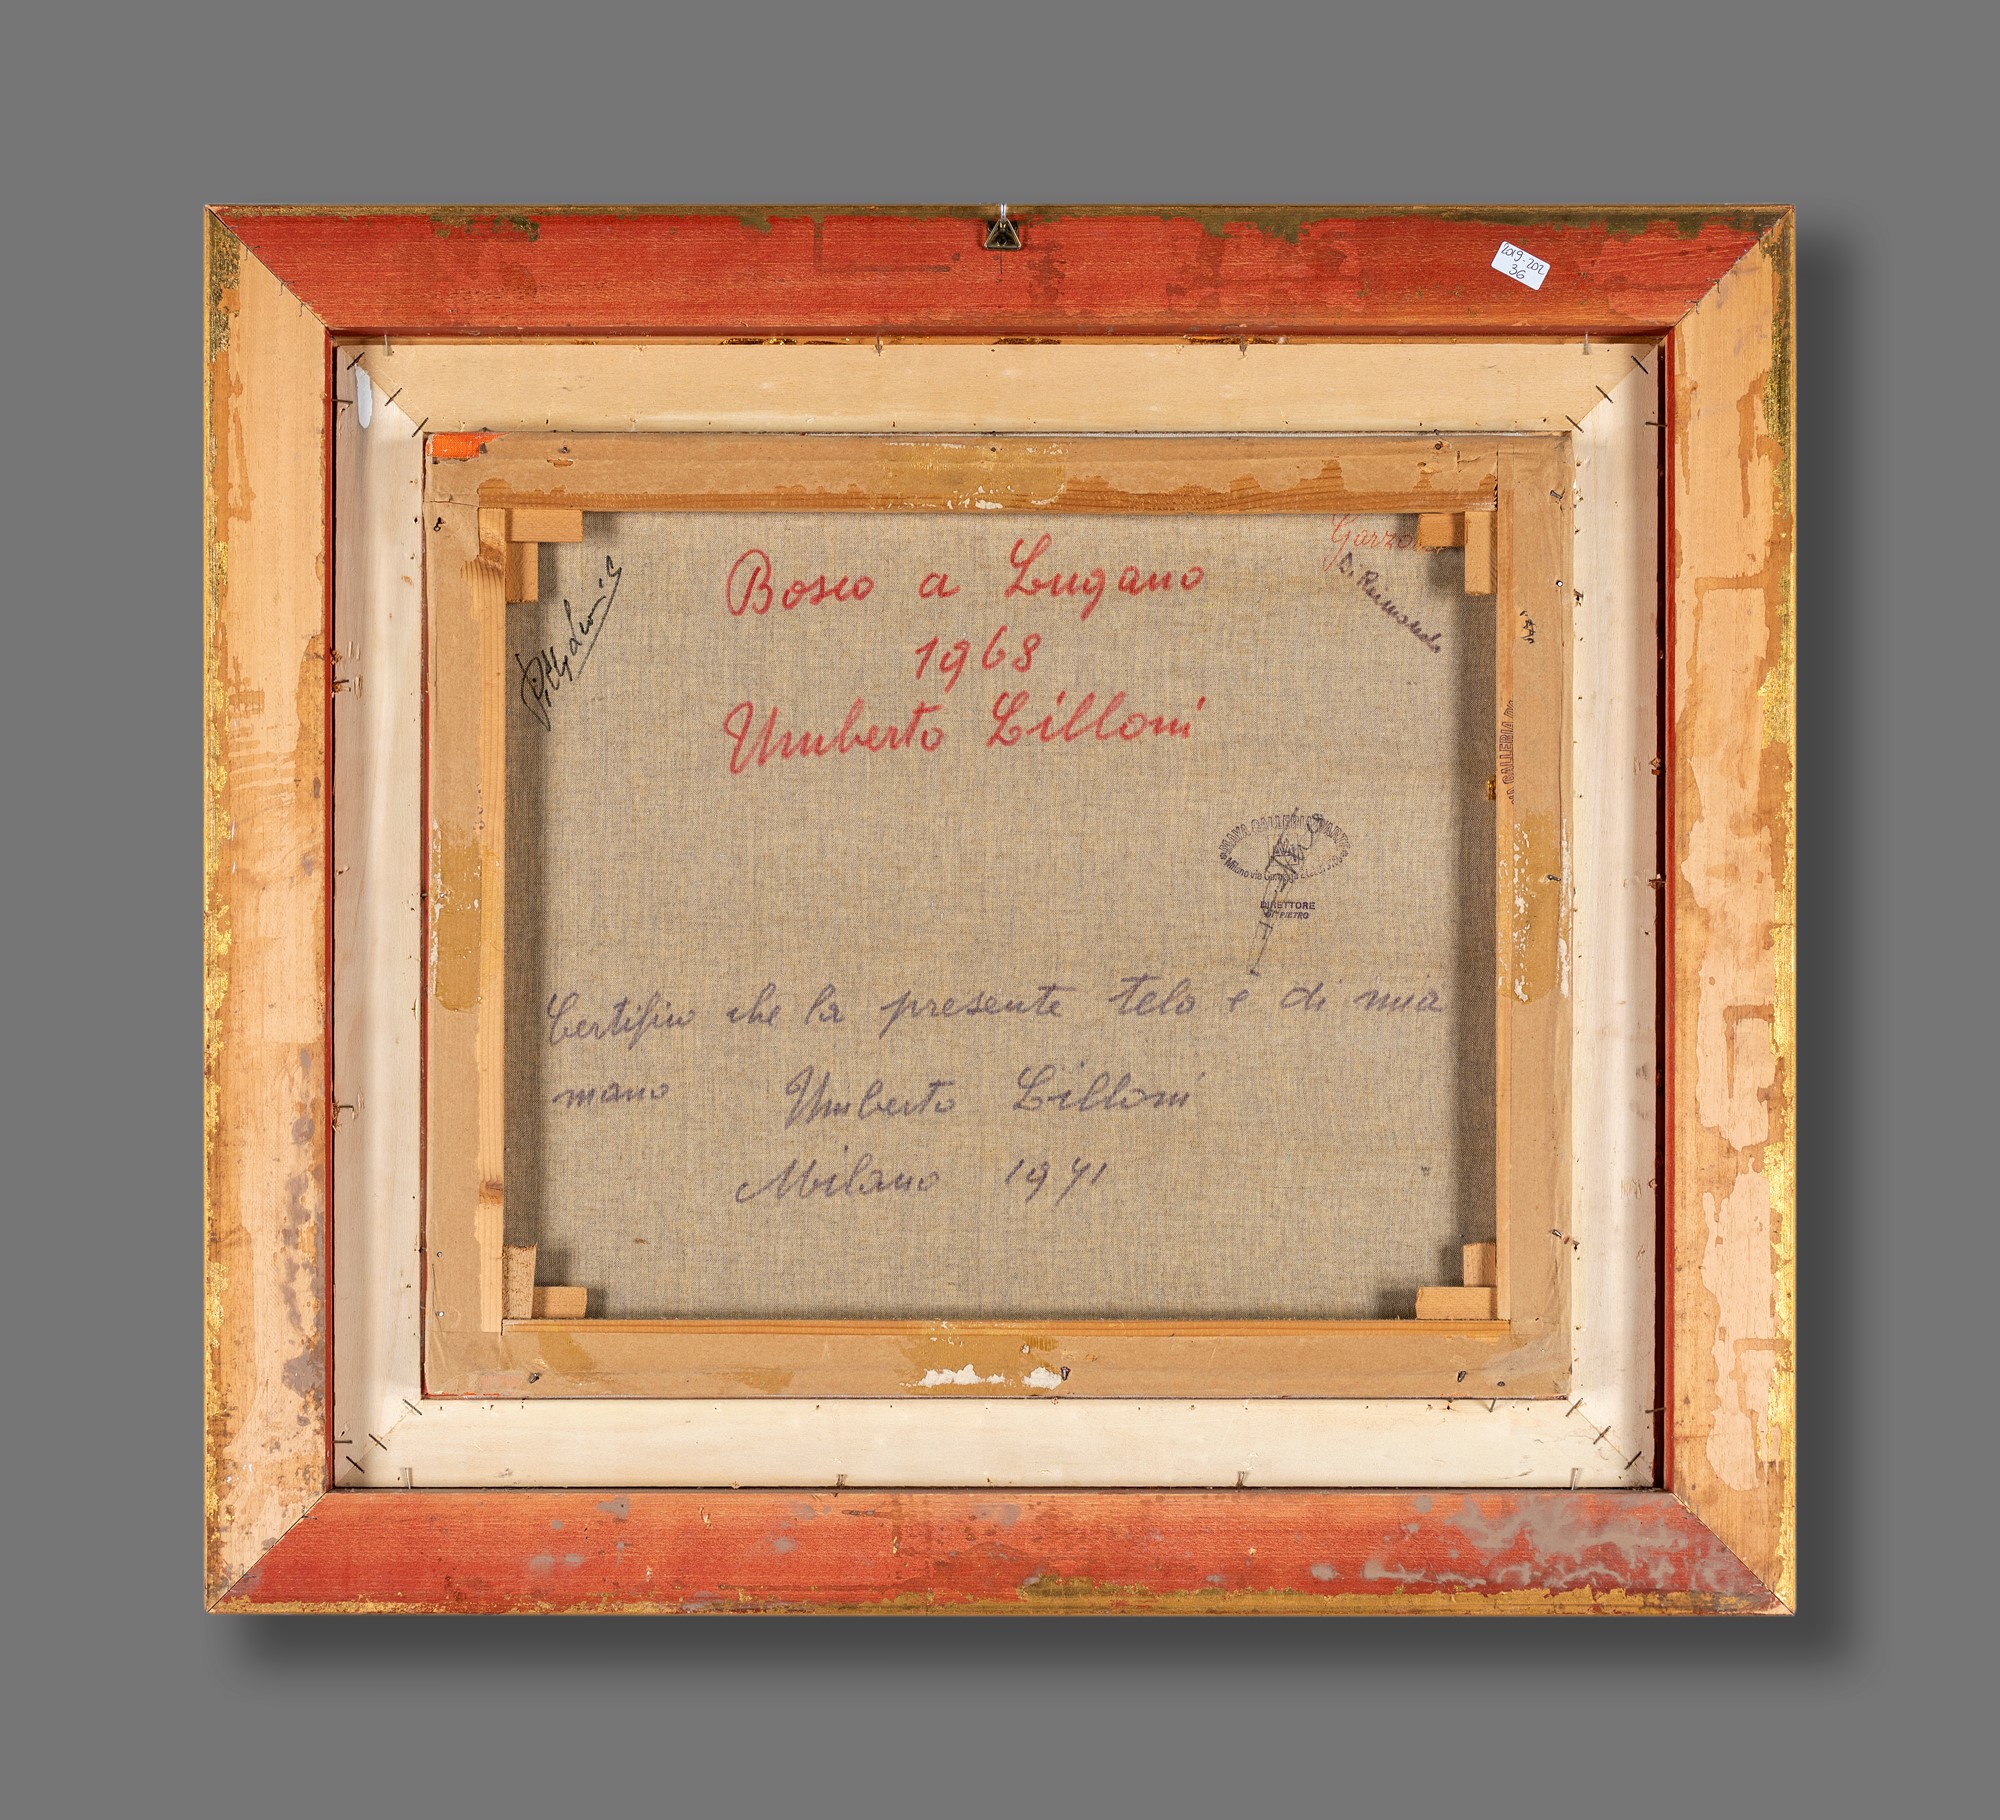 2019-202
36
Bosco a Lugano
1968
Umberto Lilloni
Di Raimondo
GALLERIA
Milano via
DIRETTORE
DI PIETRO
Certifico che la presente tela e di mia
mano Umberto Lilloni
Milano 1971